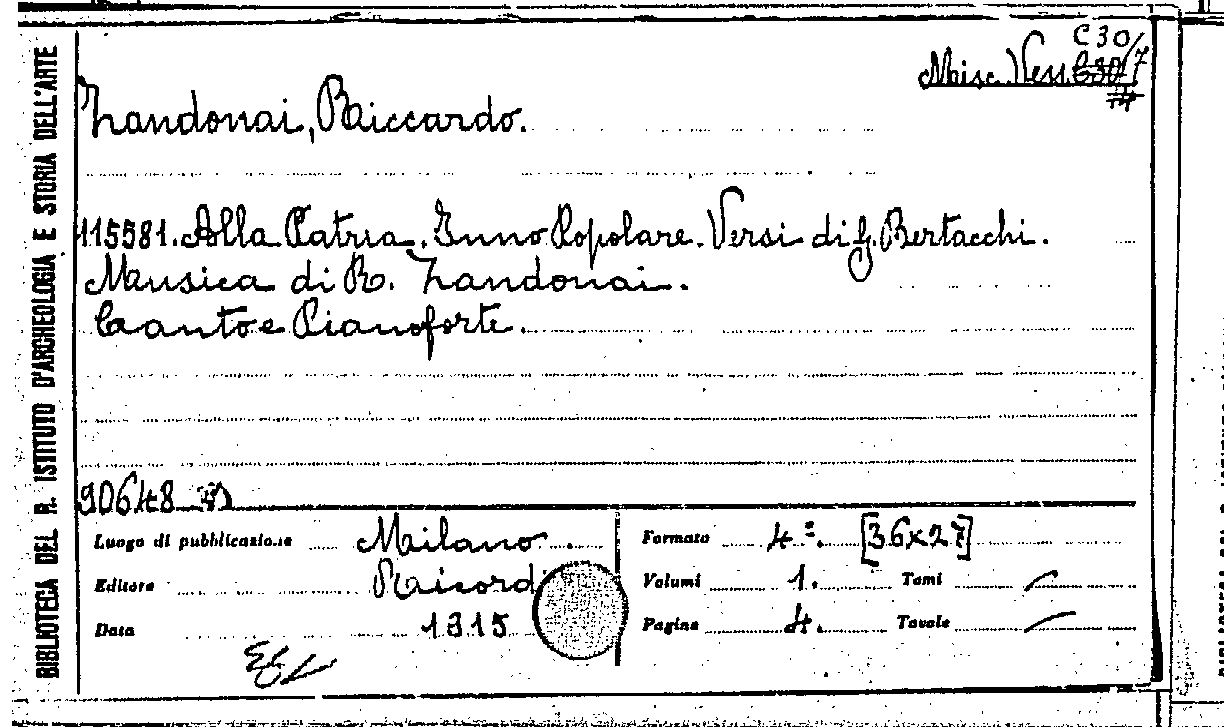 BIBLIOTECA DEL R. ISTITUTO D'ARCHEOLOGIA E STORIA DELL'ARTE
C 30/7
Misc. Vess.
Zandonai, Riccardo.
115581. Alla Patria. Inno Popolare. Versi di G. Bertacchi.
Musica di R. Zandonai.
Canto e Pianoforte.
90648
Luogo di pubblicazione Milano
Editore Ricordi
Data 1915
Formato 4º. [36x27]
Volumi 1. Tomi /
Pagine 4. Tavole /